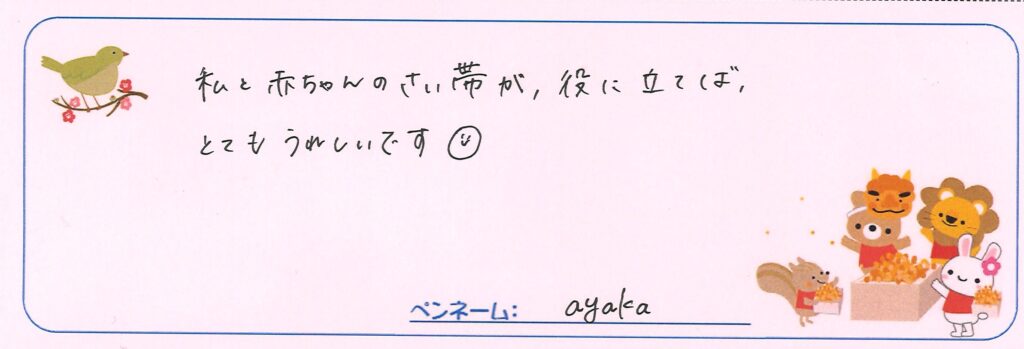 私と赤ちゃんのさい帯が, 役に立てば,
とてもうれしいです
ペンネーム: ayaka